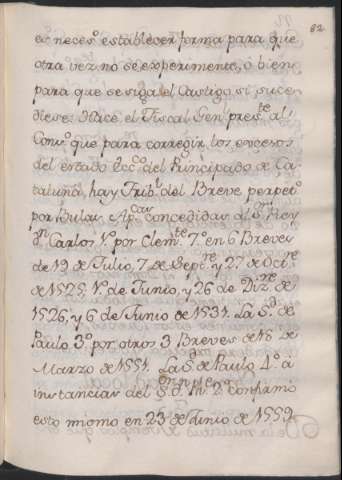 82
es neces.º establecer forma para que
otra vez no se experimente, ò bien
para que se siga el Castigo si suce-
diese: Hace el Fiscal Gen.l pres.te al
Con.º que para corregir los excesos
del estado Ecc.co del Principado de Ca-
taluña, hay Trib.l del Breve perpet.º
por Bulas Ap.cas concedidas al S.or Rey
D.n Carlos 1.º por Clem.te 7.º en 6 Breves
de 19 de Julio, 7 de Sept.re y 27 de Oct.re
de 1525, 1.º de Junio, y 26 de Diz.re de
1526, y 6 de Junio de 1531. La S.d de
Paulo 3.º por otros 3 Breves de 18 de
Marzo de 1551. La S.d de Paulo 4.º à
instancias del S.or D.n Ph.e 2.º confirmó
esto mismo en 23 de Junio de 1559